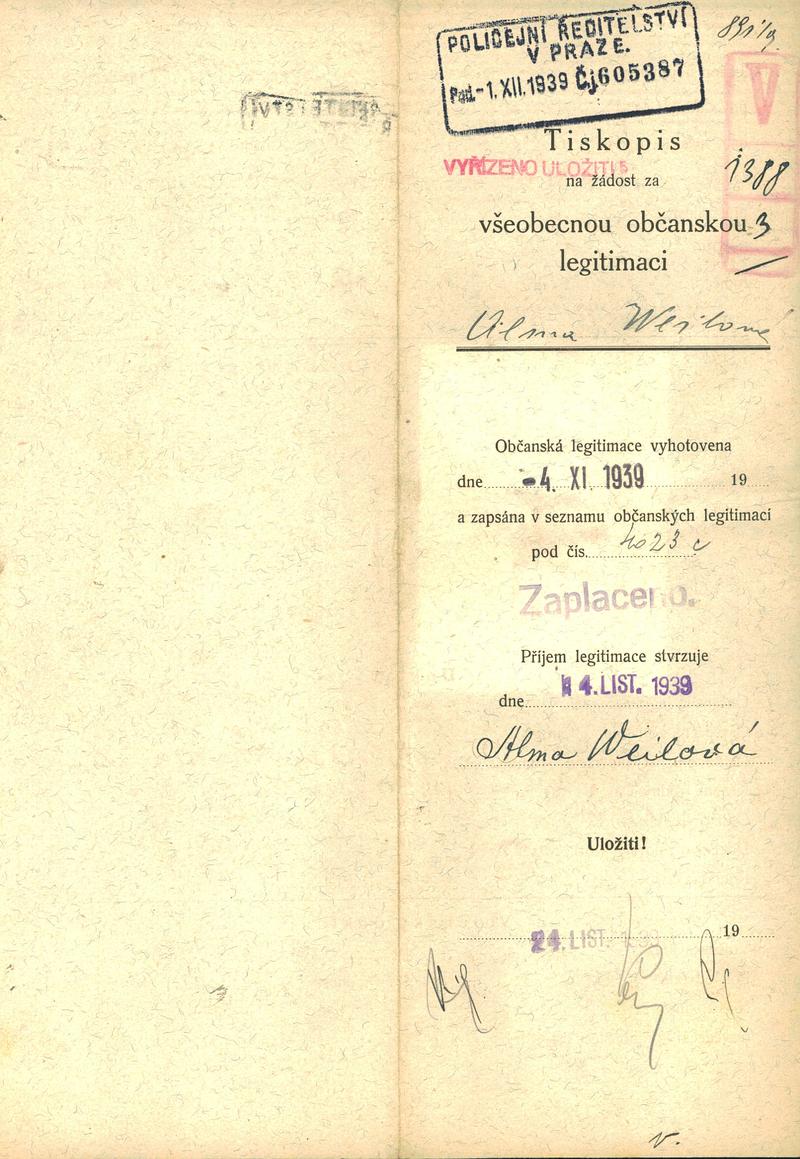 POLICEJNÍ ŘEDITELSTVÍ
V PRAZE.
Pad. -1. XII. 1939 Čj. 605387
Tiskopis
VYŘÍZENO ULOŽITI
na žádost za
1388
všeobecnou občanskou
3
legitimaci
Weilová
Občanská legitimace vyhotovena
dne -4. XI. 1939 19
a zapsána v seznamu občanských legitimací
pod čís. 4023 c
Zaplaceno.
Příjem legitimace stvrzuje
dne 4. LIST. 1939
Alma Weilová
Uložiti!
24. LIST. 1939 19
v.